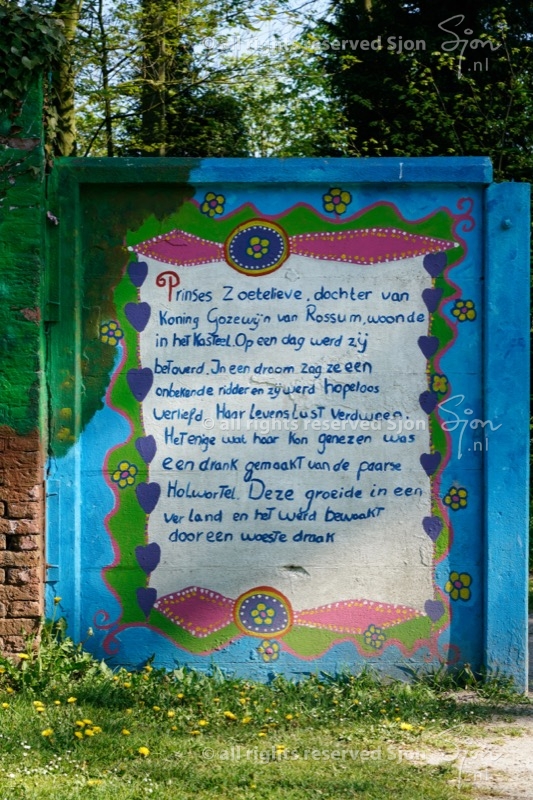 © all rights reserved Sjon
Sjon.nl
Prinses Zoetelieve, dochter van
Koning Gozewijn van Rossum, woonde
in het Kasteel. Op een dag werd zij
betoverd. In een droom zag ze een
onbekende ridder en zij werd hopeloos
verliefd. Haar Levenslust verdween.
© all rights reserved Sjon
Sjon.nl
Het enige wat haar kon genezen was
een drank gemaakt van de paarse
Holwortel. Deze groeide in een
ver land en het werd bewaakt
door een woeste draak
© all rights reserved Sjon
Sjon.nl